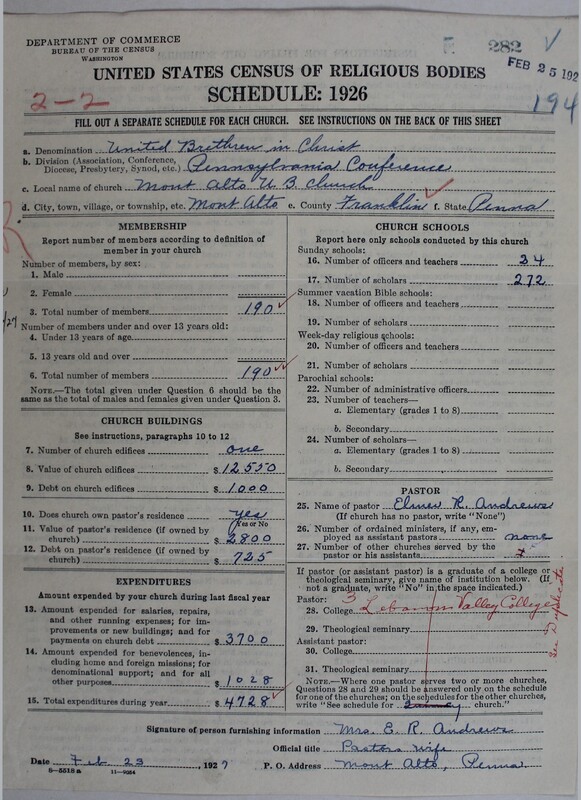 DEPARTMENT OF COMMERCE
BUREAU OF THE CENSUS
WASHINGTON
282 ✓
FEB 25 192
UNITED STATES CENSUS OF RELIGIOUS BODIES
SCHEDULE: 1926
2-2
194
FILL OUT A SEPARATE SCHEDULE FOR EACH CHURCH. SEE INSTRUCTIONS ON THE BACK OF THIS SHEET
a. Denomination United Brethren in Christ
b. Division (Association, Conference, Diocese, Presbytery, Synod, etc.) Pennsylvania Conference
c. Local name of church Mont Alto U.B. Church
d. City, town, village, or township, etc. Mont Alto e. County Franklin f. State Penna
MEMBERSHIP
Report number of members according to definition of
member in your church
Number of members, by sex:
1. Male
2. Female
3. Total number of members 190 ✓
Number of members under and over 13 years old:
4. Under 13 years of age
5. 13 years old and over
6. Total number of members 190 ✓✓
NOTE.—The total given under Question 6 should be the
same as the total of males and females given under Question 3.
CHURCH BUILDINGS
See instructions, paragraphs 10 to 12
7. Number of church edifices one
8. Value of church edifices $ 12,550
9. Debt on church edifices $ 1000
10. Does church own pastor's residence yes
Yes or No
11. Value of pastor's residence (if owned by
church) $ 2800
12. Debt on pastor's residence (if owned by
church) $ 725
EXPENDITURES
Amount expended by your church during last fiscal year
13. Amount expended for salaries, repairs,
and other running expenses; for im-
provements or new buildings; and for
payments on church debt $ 3700
14. Amount expended for benevolences, in-
cluding home and foreign missions; for
denominational support; and for all
other purposes $ 1028
15. Total expenditures during year $ 4728 ✓
CHURCH SCHOOLS
Report here only schools conducted by this church
Sunday schools:
16. Number of officers and teachers 34
17. Number of scholars 272
Summer vacation Bible schools:
18. Number of officers and teachers
19. Number of scholars
Week-day religious schools:
20. Number of officers and teachers
21. Number of scholars
Parochial schools:
22. Number of administrative officers
23. Number of teachers—
a. Elementary (grades 1 to 8)
b. Secondary
24. Number of scholars—
a. Elementary (grades 1 to 8)
b. Secondary
PASTOR
25. Name of pastor Elmer R. Andrews
(If church has no pastor, write "None")
26. Number of ordained ministers, if any, em-
ployed as assistant pastors none
27. Number of other churches served by the
pastor or his assistants
If pastor (or assistant pastor) is a graduate of a college or
theological seminary, give name of institution below. (If
not a graduate, write "No" in the space indicated.)
Pastor: 3
28. College Lebanon Valley College
29. Theological seminary
Assistant pastor:
30. College
31. Theological seminary
See Duplicate
NOTE.—Where one pastor serves two or more churches,
Questions 28 and 29 should be answered only on the schedule
for one of the churches; on the schedules for the other churches,
write "See schedule for church."
Signature of person furnishing information Mrs. E. R. Andrews
Official title Pastors wife
Date Feb 23, 1927 P. O. Address Mont Alto, Penna.
8-5518a 11-9034